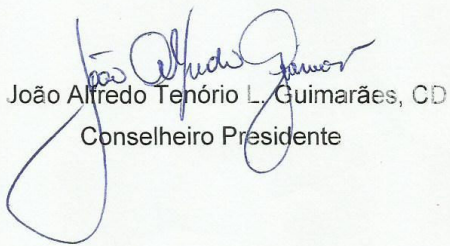 João Alfredo Guimar
João Alfredo Tenório L. Guimarães, CD
Conselheiro Presidente